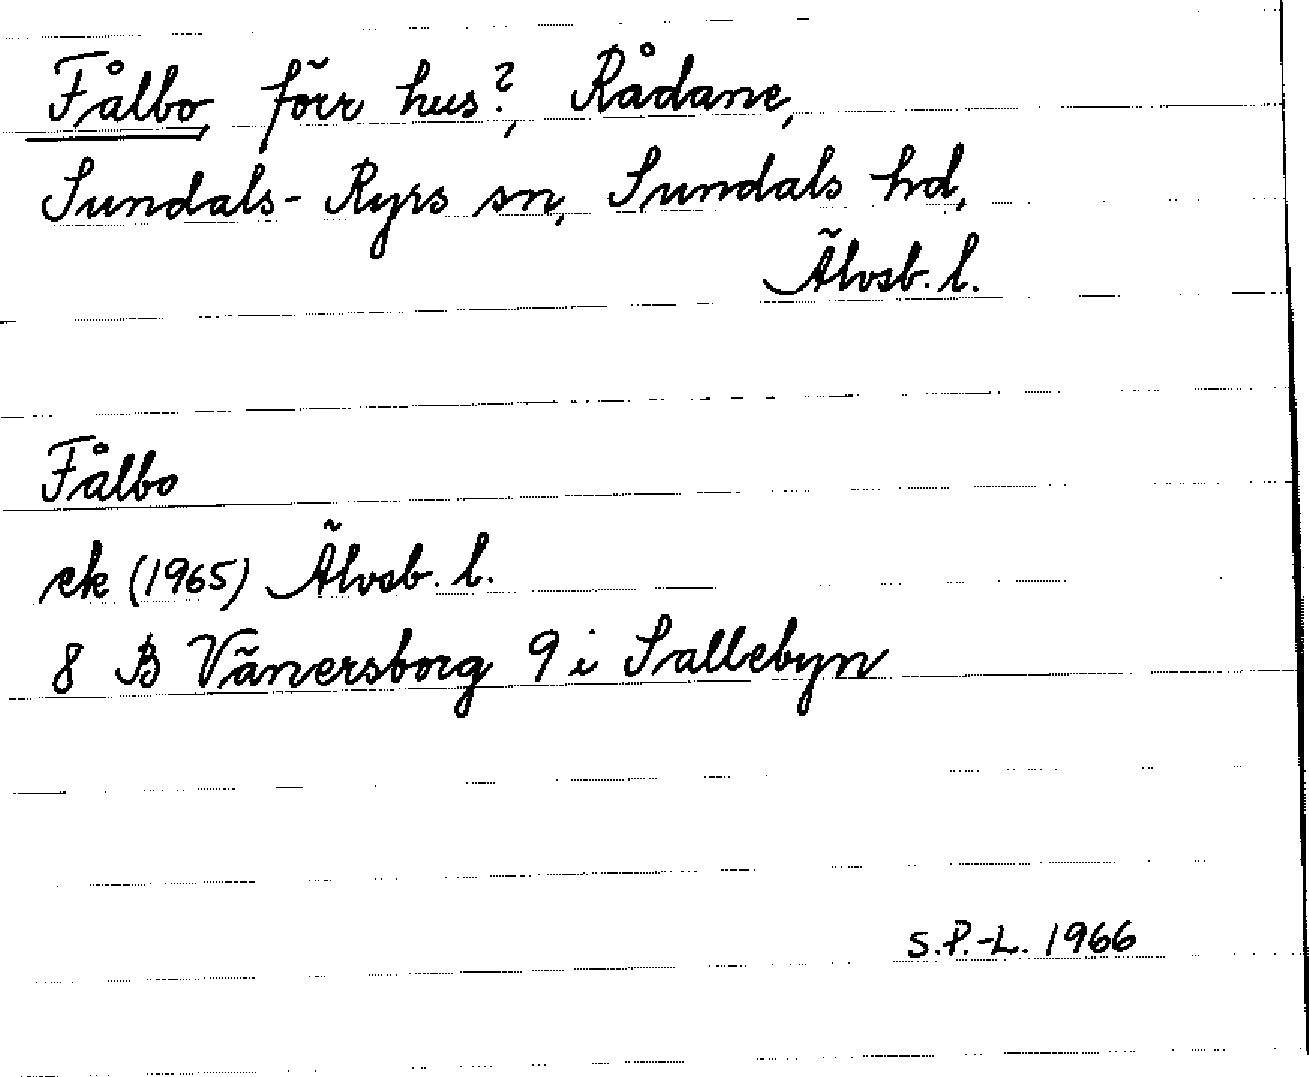 Fålbo, förr hus?, Rådane,
Sundals-Ryrs sn, Sundals hd,
Älvsb. l.
Fålbo
ek (1965) Älvsb. l.
8 B Vänersborg 9 i Sallebyn
S.P.-L. 1966